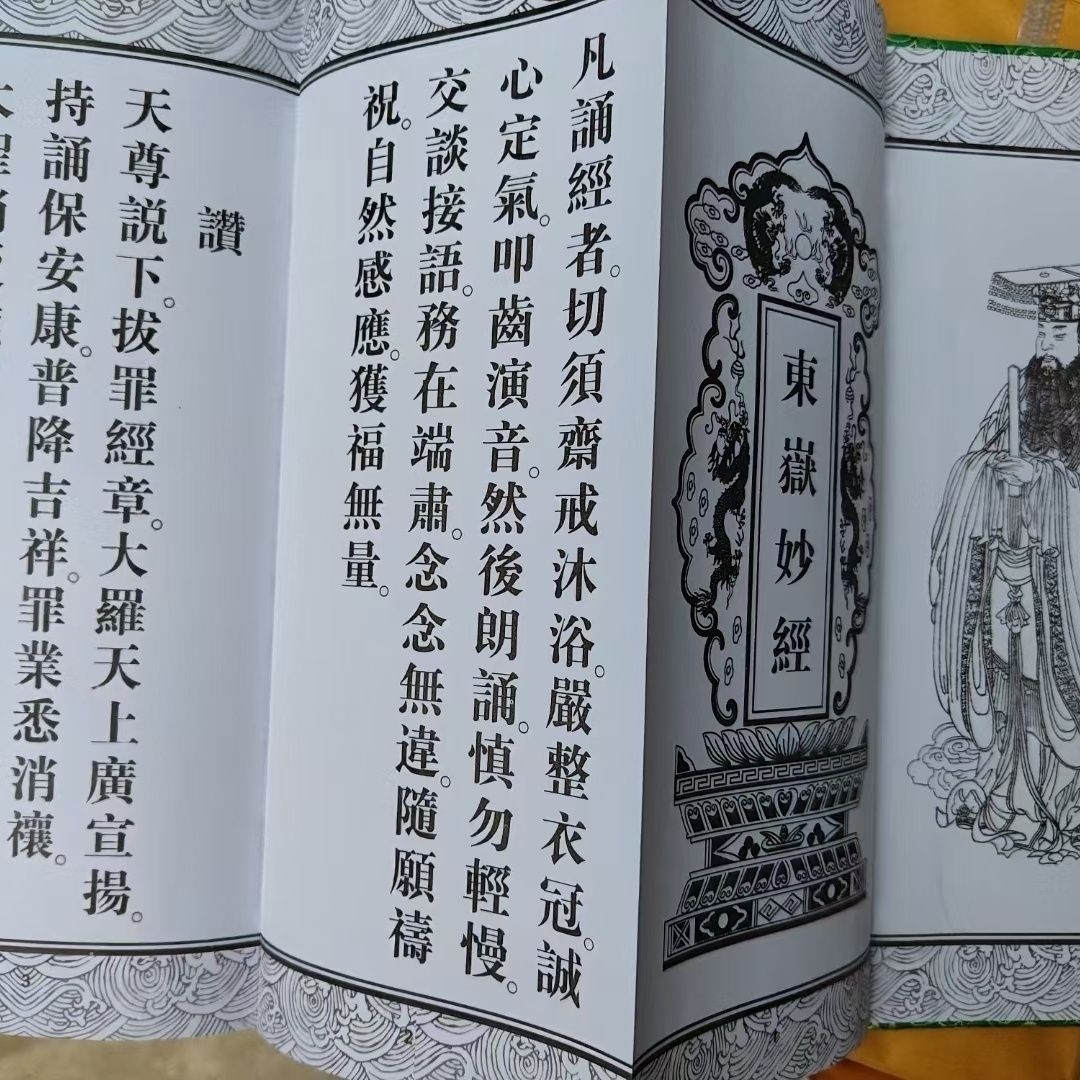 東嶽妙經
凡誦經者。切須齋戒沐浴。嚴整衣冠。誠
心定氣。叩齒演音。然後朗誦。慎勿輕慢。
交談接語。務在端肅。念念無違。隨願禱
祝。自然感應。獲福無量。
2
讚
天尊説下。拔罪經章。大羅天上廣宣揚。
持誦保安康。普降吉祥。罪業悉消禳。